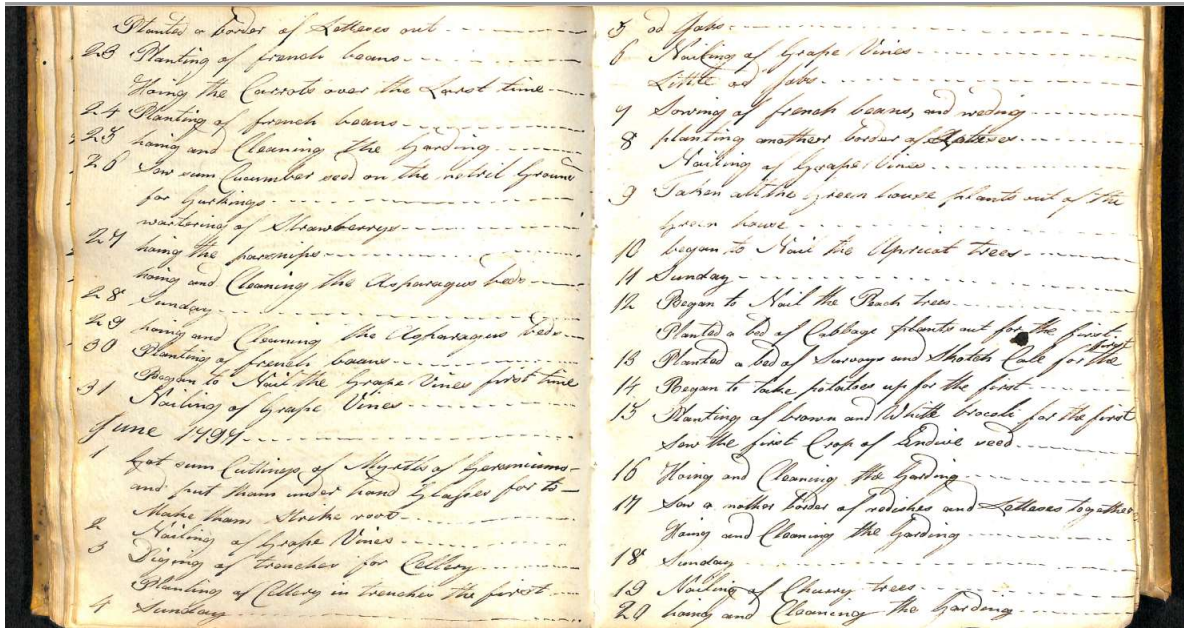 Planted a border of Lettuses out
23 Planting of french beans
Hoing the Carrots over the Larst time
24 Planting of french beans
25 hoing and Cleaning the Garding
26 Sow sum Cucumber seed on the natril Ground
for Gurkings
wartering of Strawberrys
27 hoing the parsnips
hoing and Cleaning the Asparagus beds
28 Sunday
29 hoing and Cleaning the Asparagus beds
30 Planting of french beans
Began to Nail the Grape Vines first time
31 Nailing of Grape Vines
June 1797
1 Got sum Cuttings of Myrtls of Geraniums
and put tham under hand Glasses for to
Make tham strike root
2 Nailing of Grape Vines
3 Diging of trenches for Cellery
Planting of Cellery in trenches the first
4 Sunday
5 od Jobs
6 Nailing of Grape Vines
Little od Jobs
7 Sowing of french beans, and weding
8 planting another border of
Nailing of Grape Vines
9 Taken all the Green house plants out of the
Green house
10 began to Nail the Apricot trees
11 Sunday
12 Began to Nail the Peach trees
Planted a bed of Cabbage plants out for the first
13 Planted a bed of Savoys and Skotch Cale for the first
14 Began to take potatoes up for the first
15 Planting of brown and White brocoli for the first
Sow the first Crop of Endive seed
16 Hoing and Cleaning the Garding
17 Sow a nother border of redishes and Lettuses together
Hoing and Cleaning the Garding
18 Sunday
19 Nailing of Charry trees
20 hoing and Cleaning the Garding